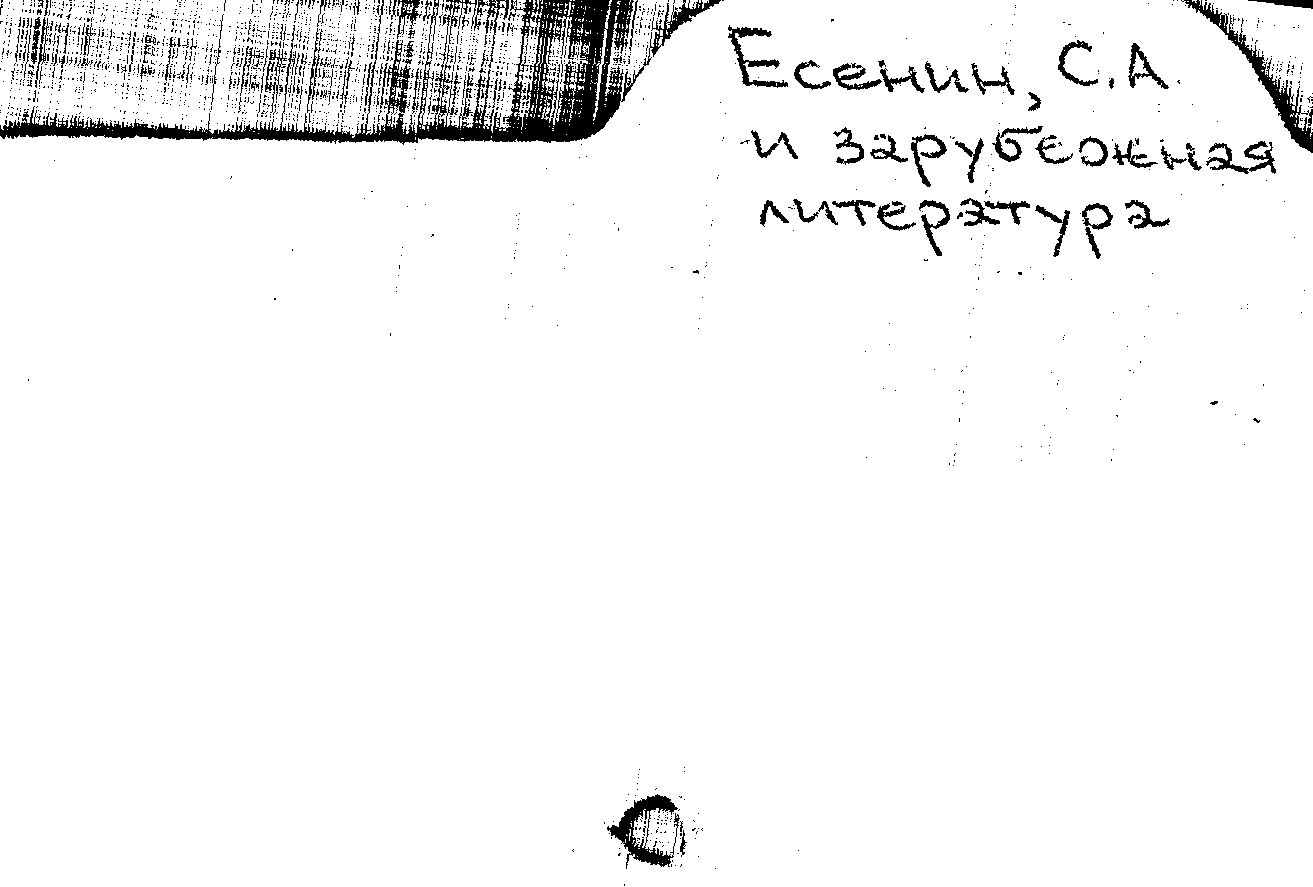 Есенин, С.А.
и зарубежная
литература